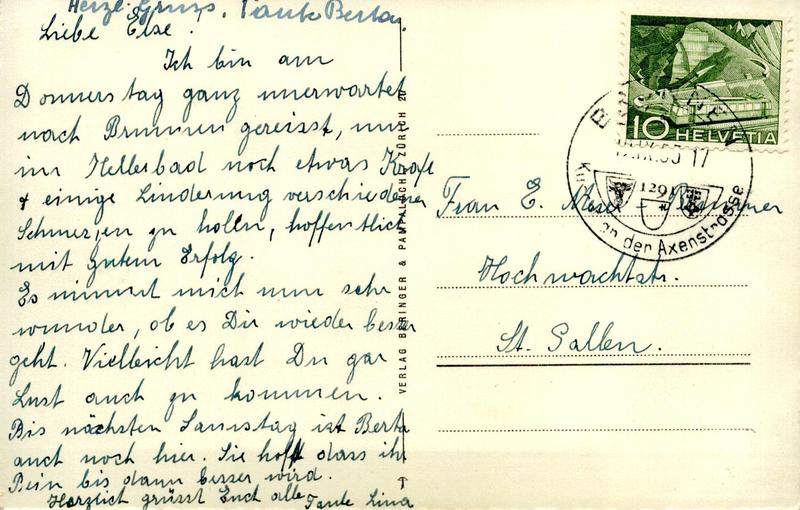 Herzl. Gruss, Tante Berta
Liebe Else.
Ich bin am
Donnerstag ganz unerwartet
nach Brunnen gereisst, um
im Hellerbad noch etwas Kraft
& einige Linderung verschiedener
Schmerzen zu hollen, hoffentlich
mit Gutem Erfolg.
Es nimmt mich nun sehr
wunder, ob es Dir wieder besser
geht. Vielleicht hast Du gar
Lust auch zu kommen.
Bis nächsten Samstag ist Berta
auch noch hier. Sie hofft dass ihr
Bein bis dann besser wird.
Herzlich grüsst Euch alle Tante Lina
VERLAG BERINGER & PAMPALUCHI, ZÜRICH 20
10 HELVETIA
BRUNNEN
17
1291
an der Axenstrasse
Frau E.
Hochwachtstr.
St. Gallen.